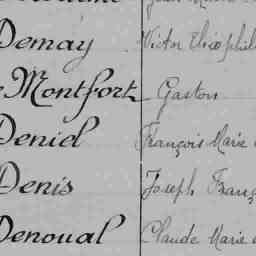 Demay Victor Théophile
Montfort Gaston
Deniel François Marie
Denis Joseph Franç
Denoual Claude Marie